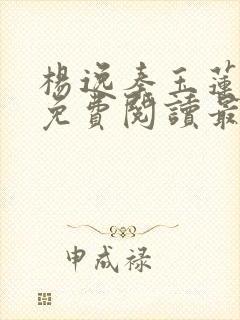 楊逸秦玉蓮
免費閱讀最
申成禄